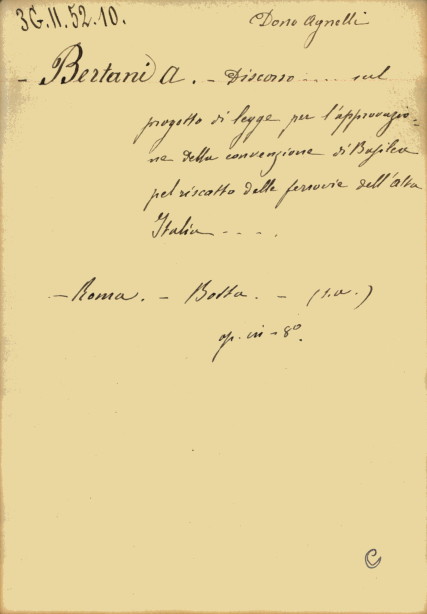 3G.II.52.10.
Dono Agnelli
- Bertani A. - Discorso .... sul
progetto di legge per l'approvazio=
ne della convenzione di Basilea
pel riscatto delle ferrovie dell'Alta
Italia ....
- Roma. - Botta. - (s.a.)
op. in - 8º.
C